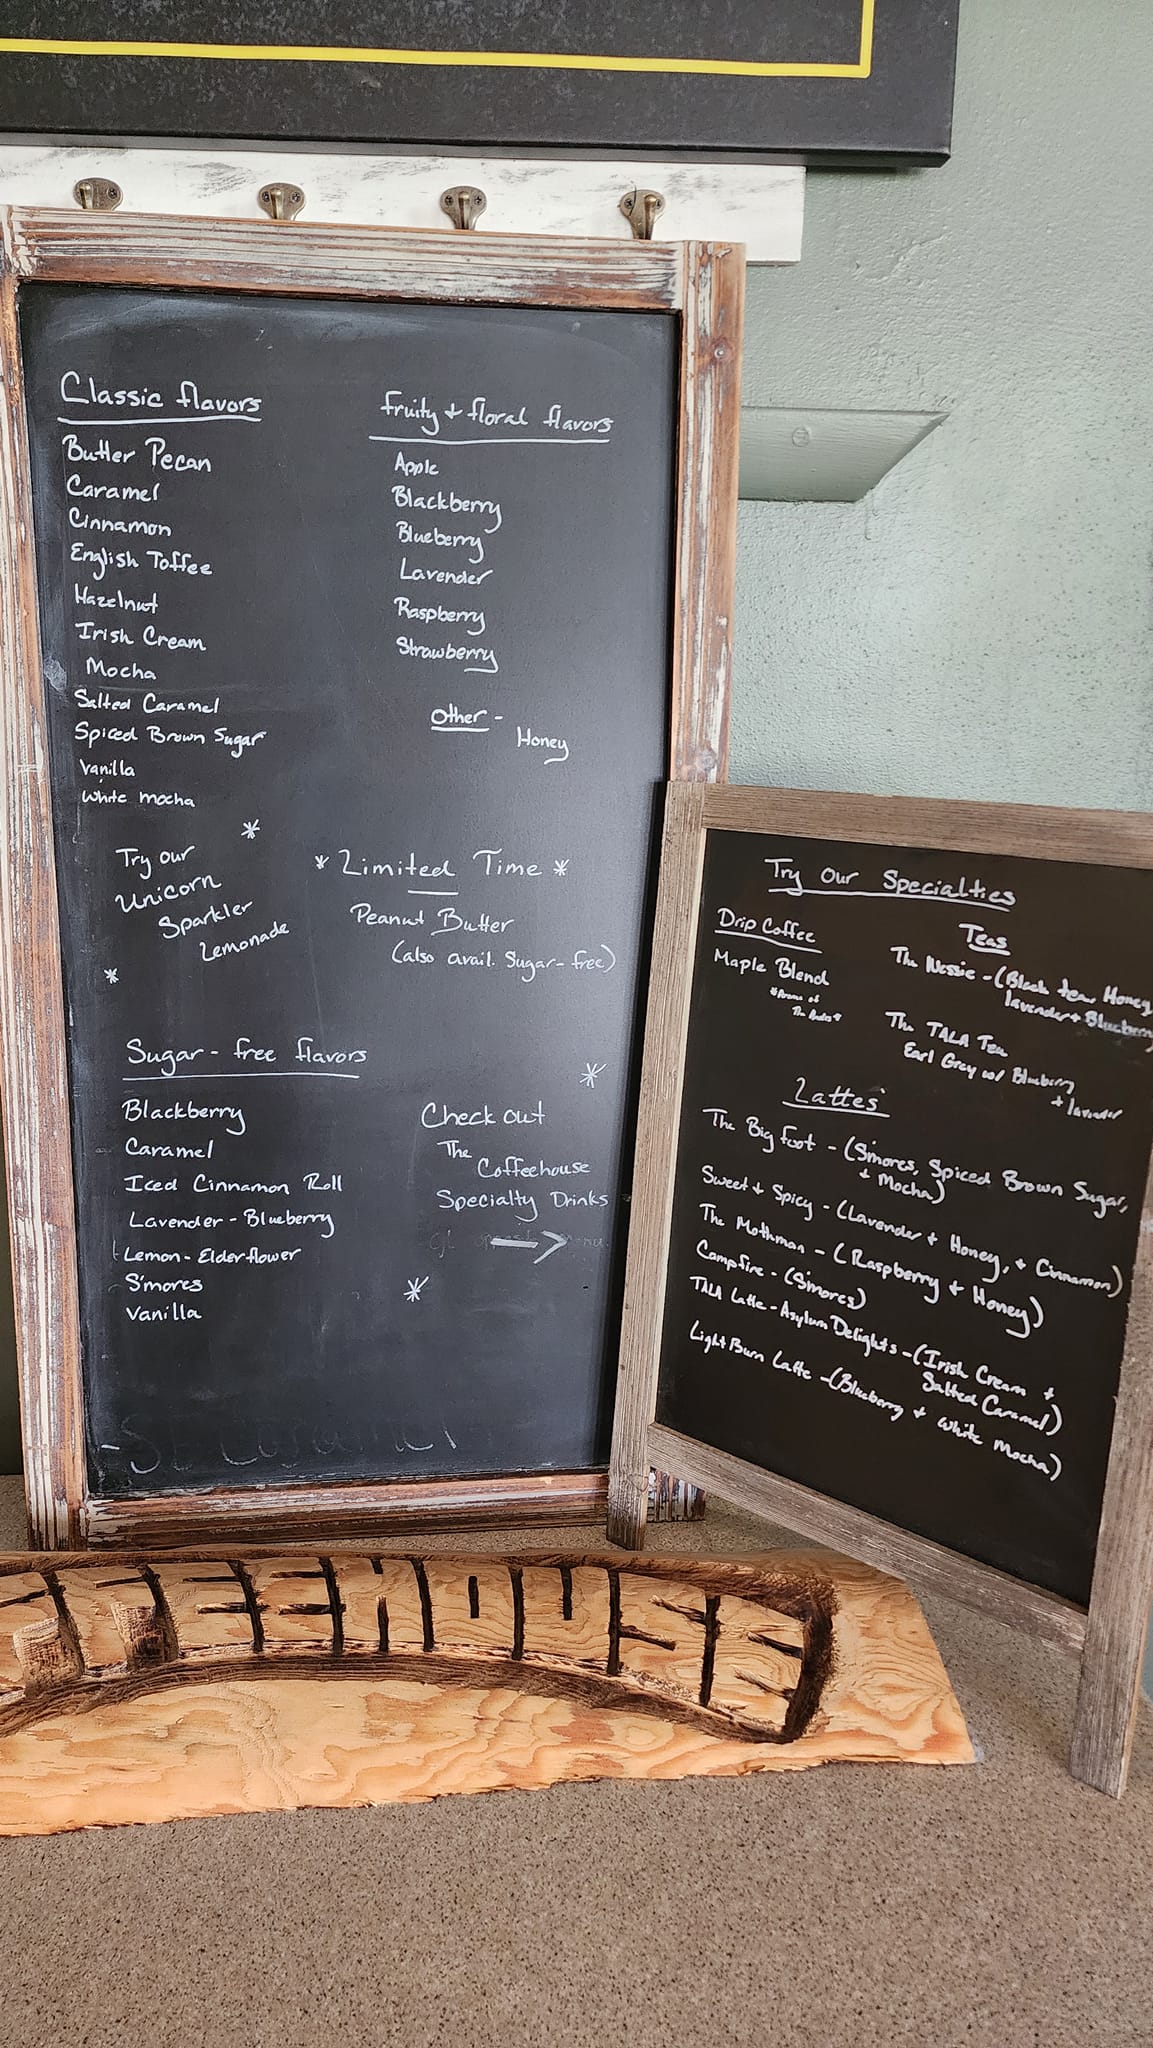 Classic flavors
Butter Pecan
Caramel
Cinnamon
English Toffee
Hazelnut
Irish Cream
Mocha
Salted Caramel
Spiced Brown Sugar
Vanilla
White mocha
fruity + floral flavors
Apple
Blackberry
Blueberry
Lavender
Raspberry
Strawberry
Other -
Honey
Try our
Unicorn
Sparkler
Lemonade
* Limited Time *
Peanut Butter
(also avail. Sugar-free)
Sugar-free flavors
Blackberry
Caramel
Iced Cinnamon Roll
Lavender-Blueberry
Lemon-Elderflower
S'mores
Vanilla
Check out
The
Coffeehouse
Specialty Drinks
Try Our Specialties
Drip Coffee
Maple Blend
Teas
The Nessie - (Black tea, Honey
lavender + Blueberry
The TALA Tea
Earl Grey w/ Blueberry
+ lavender
Lattes
The Big foot - (S'mores, Spiced Brown Sugar,
+ Mocha)
Sweet + Spicy - (Lavender + Honey, + Cinnamon)
The Mothman - (Raspberry + Honey)
Campfire - (S'mores)
TALA Latte - Asylum Delights - (Irish Cream +
Salted Caramel)
Light Burn Latte - (Blueberry + White Mocha)
FFEEHOUSE